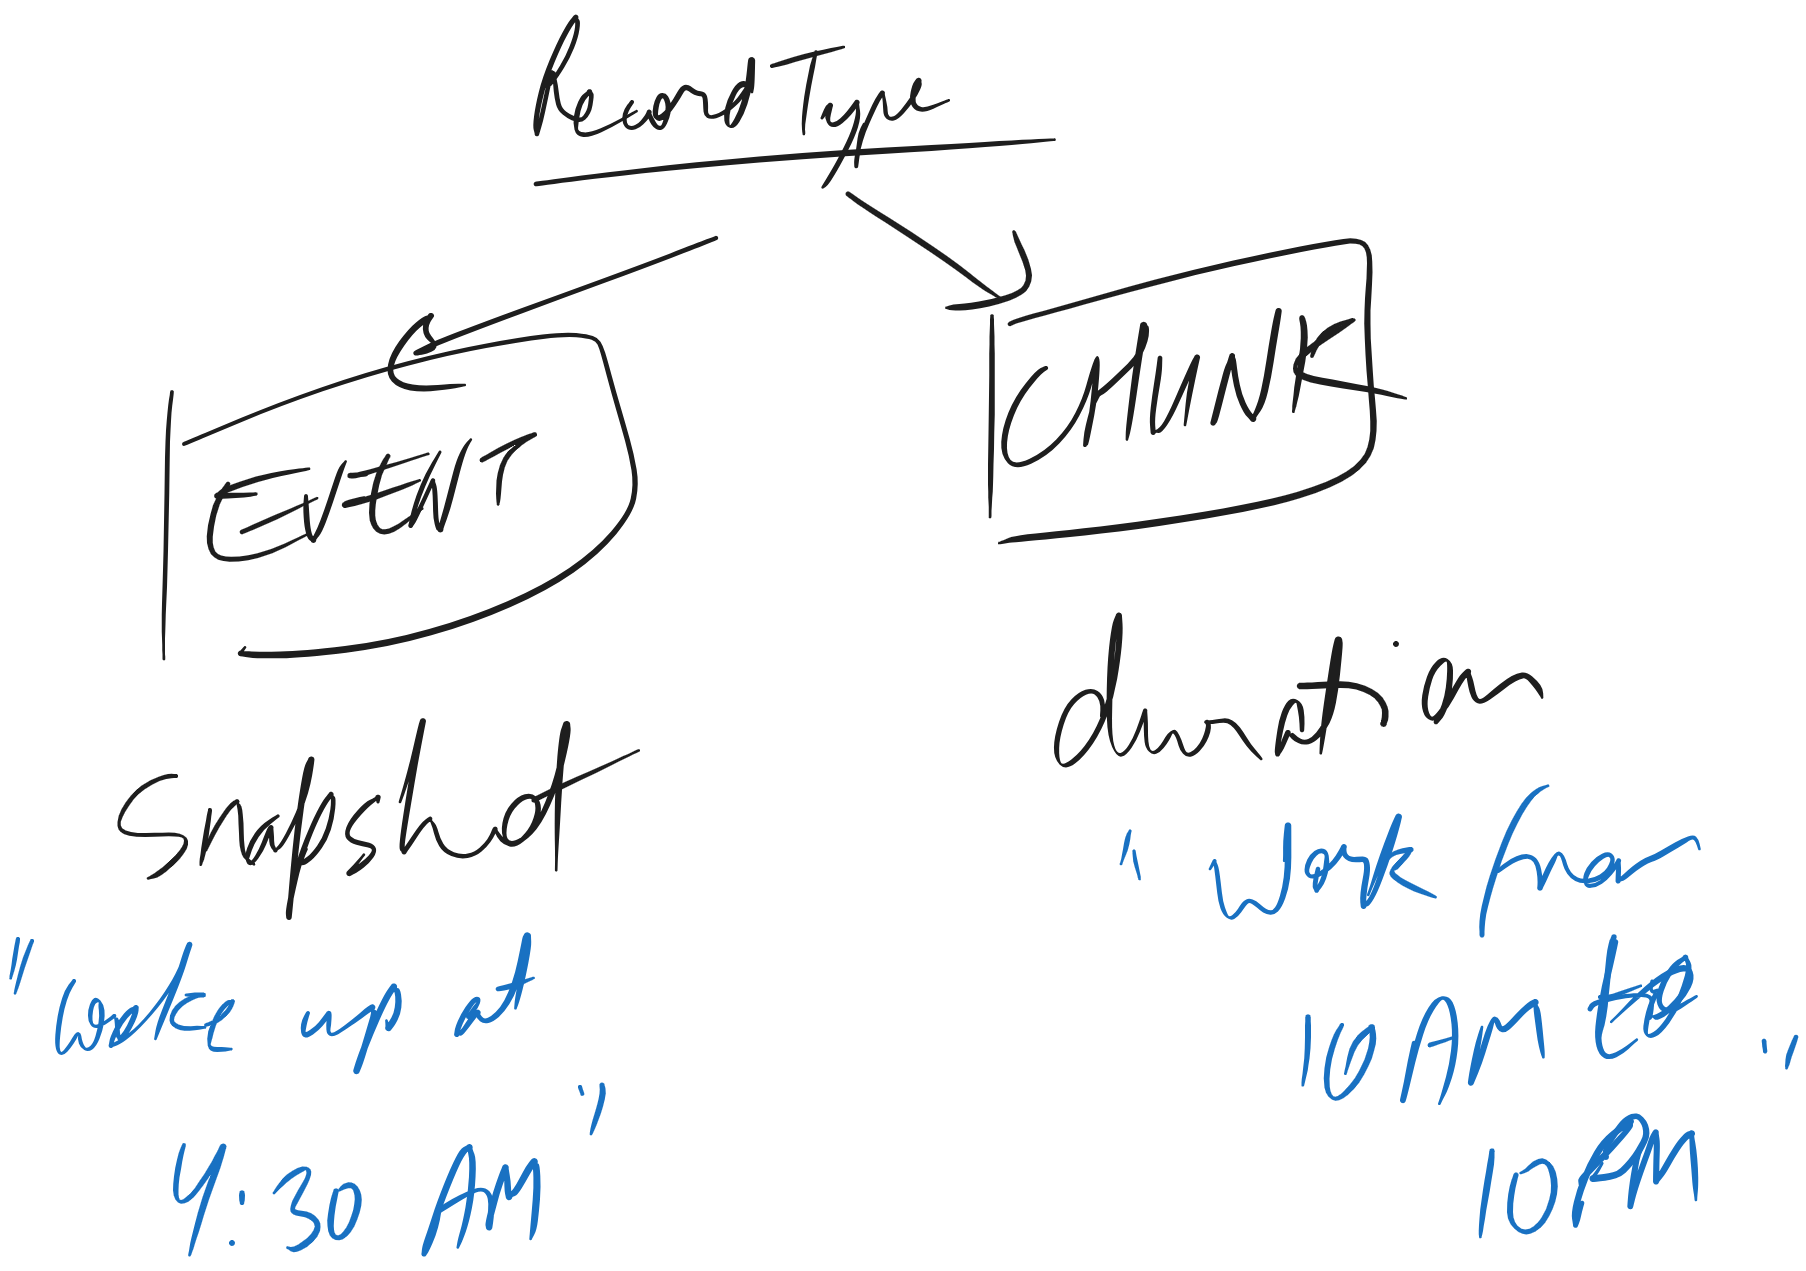 Record Type
EVENT
CHUNK
snapshot
"woke up at
4:30 AM"
duration
"Work from
10 AM to
10 PM"